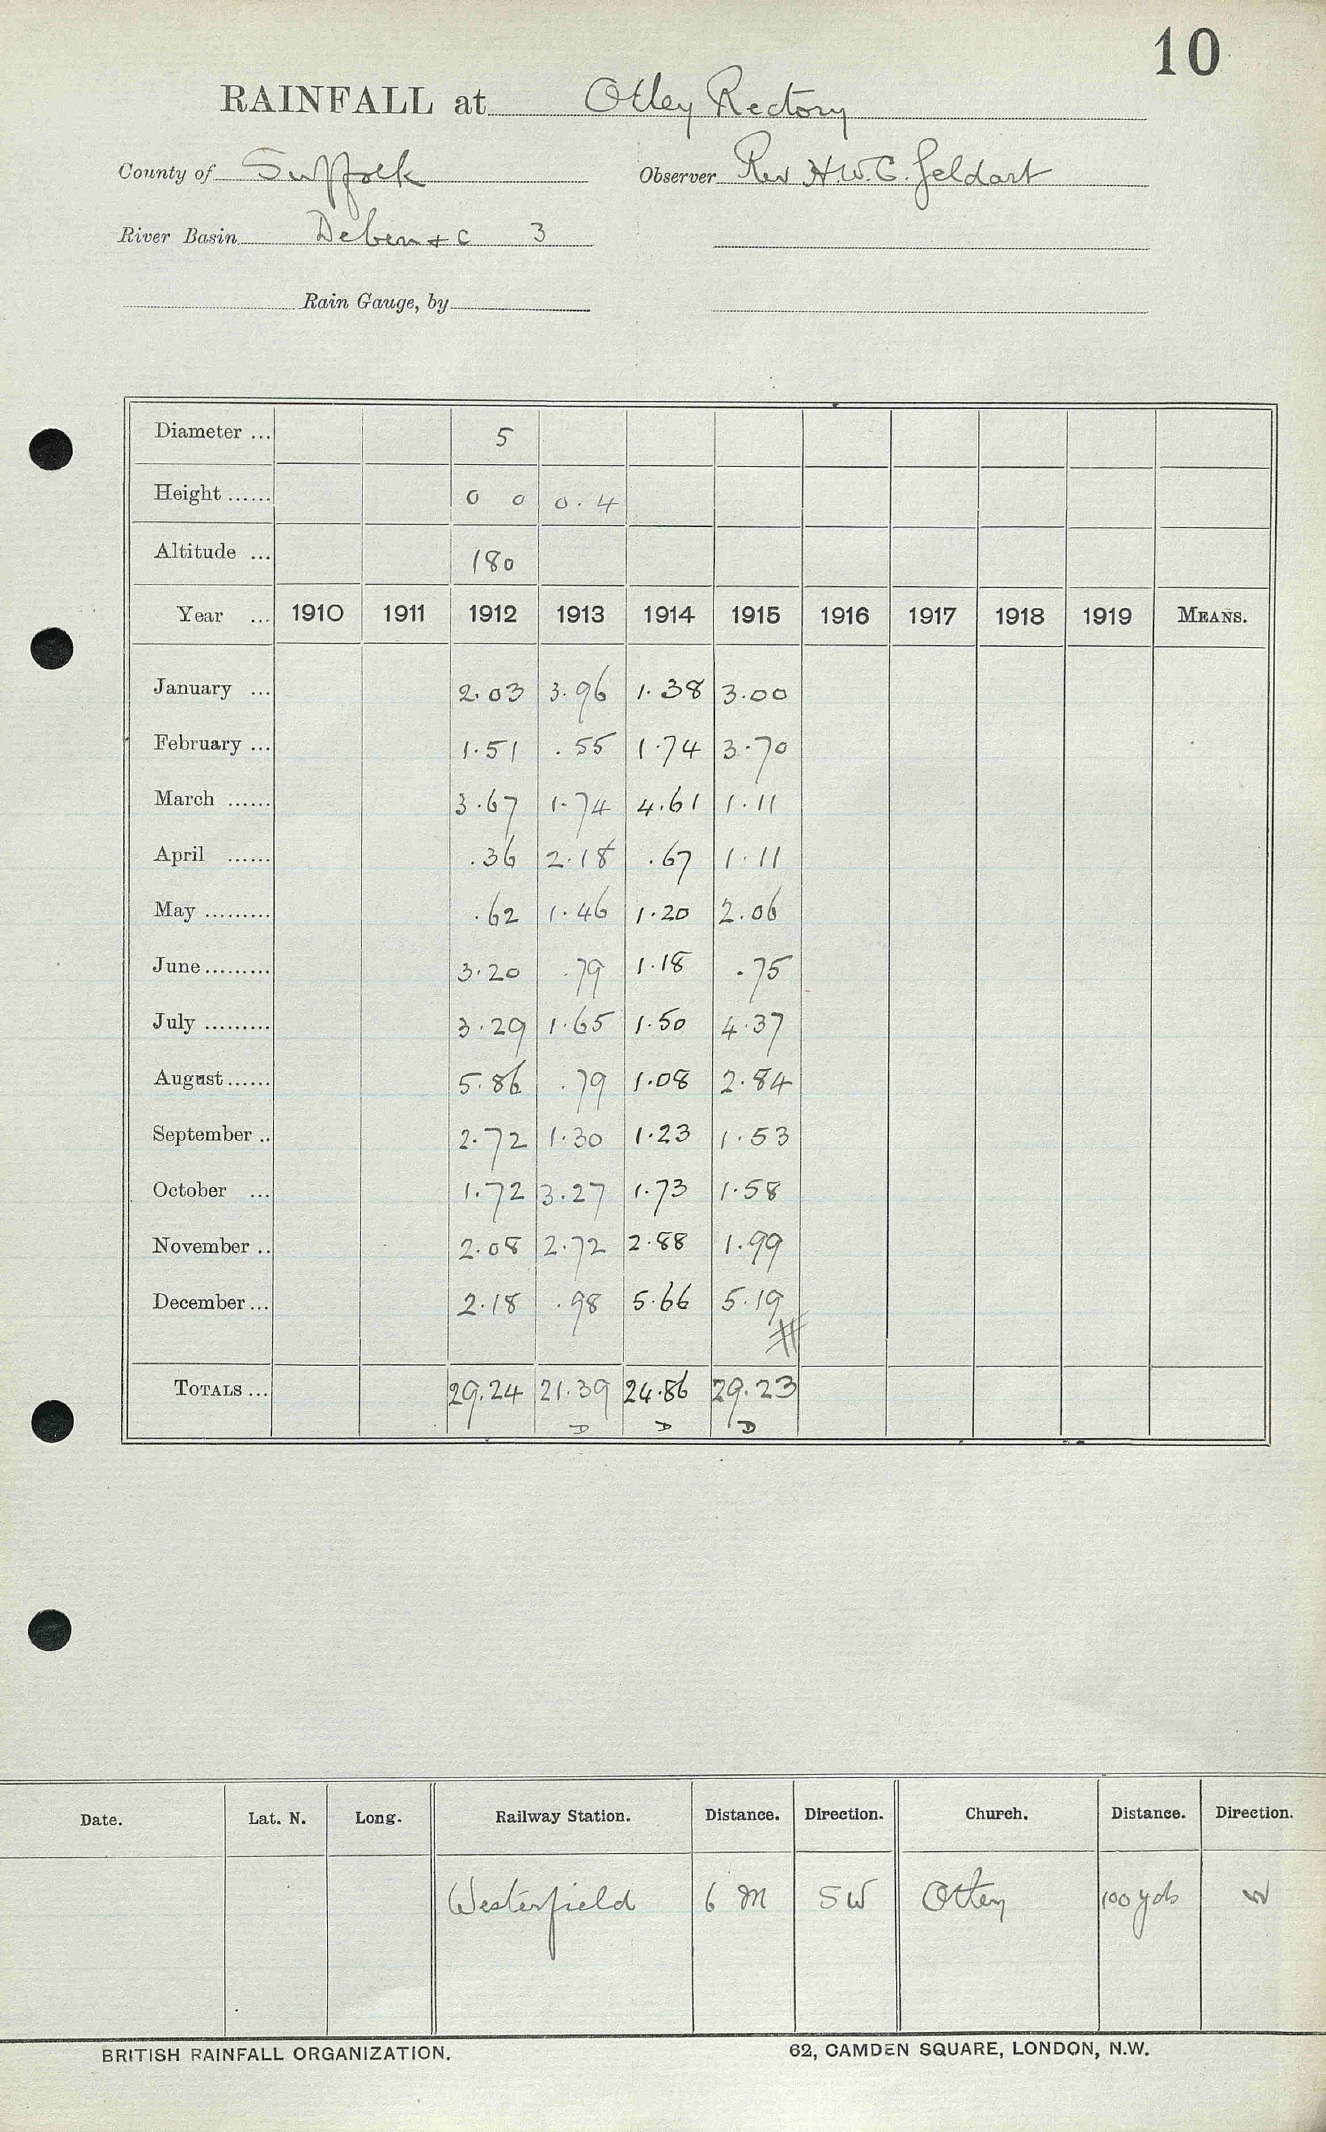 10
RAINFALL at Otley Rectory
County of Suffolk Observer Rev H.W.C. Geldart
River Basin Deben + c 3
Rain Gauge, by
Diameter ... 5
Height ...... 0 0 0.4
Altitude ... 180
Year ... 1910 1911 1912 1913 1914 1915 1916 1917 1918 1919 MEANS.
January ... 2.03 3.96 1.38 3.00
February ... 1.51 .55 1.74 3.70
March ...... 3.67 1.74 4.61 1.11
April ...... .36 2.18 .67 1.11
May ......... .62 1.46 1.20 2.06
June ......... 3.20 .79 1.18 .75
July ......... 3.29 1.65 1.50 4.37
August ...... 5.86 .79 1.08 2.84
September .. 2.72 1.30 1.23 1.53
October ... 1.72 3.27 1.73 1.58
November .. 2.08 2.72 2.88 1.99
December ... 2.18 .98 5.66 5.19
#
TOTALS ... 29.24 21.39 24.86 29.23
D D D
Date. Lat. N. Long. Railway Station. Distance. Direction. Church. Distance. Direction.
Westerfield 6 M SW Otley 100 yds W
BRITISH RAINFALL ORGANIZATION. 62, CAMDEN SQUARE, LONDON, N.W.